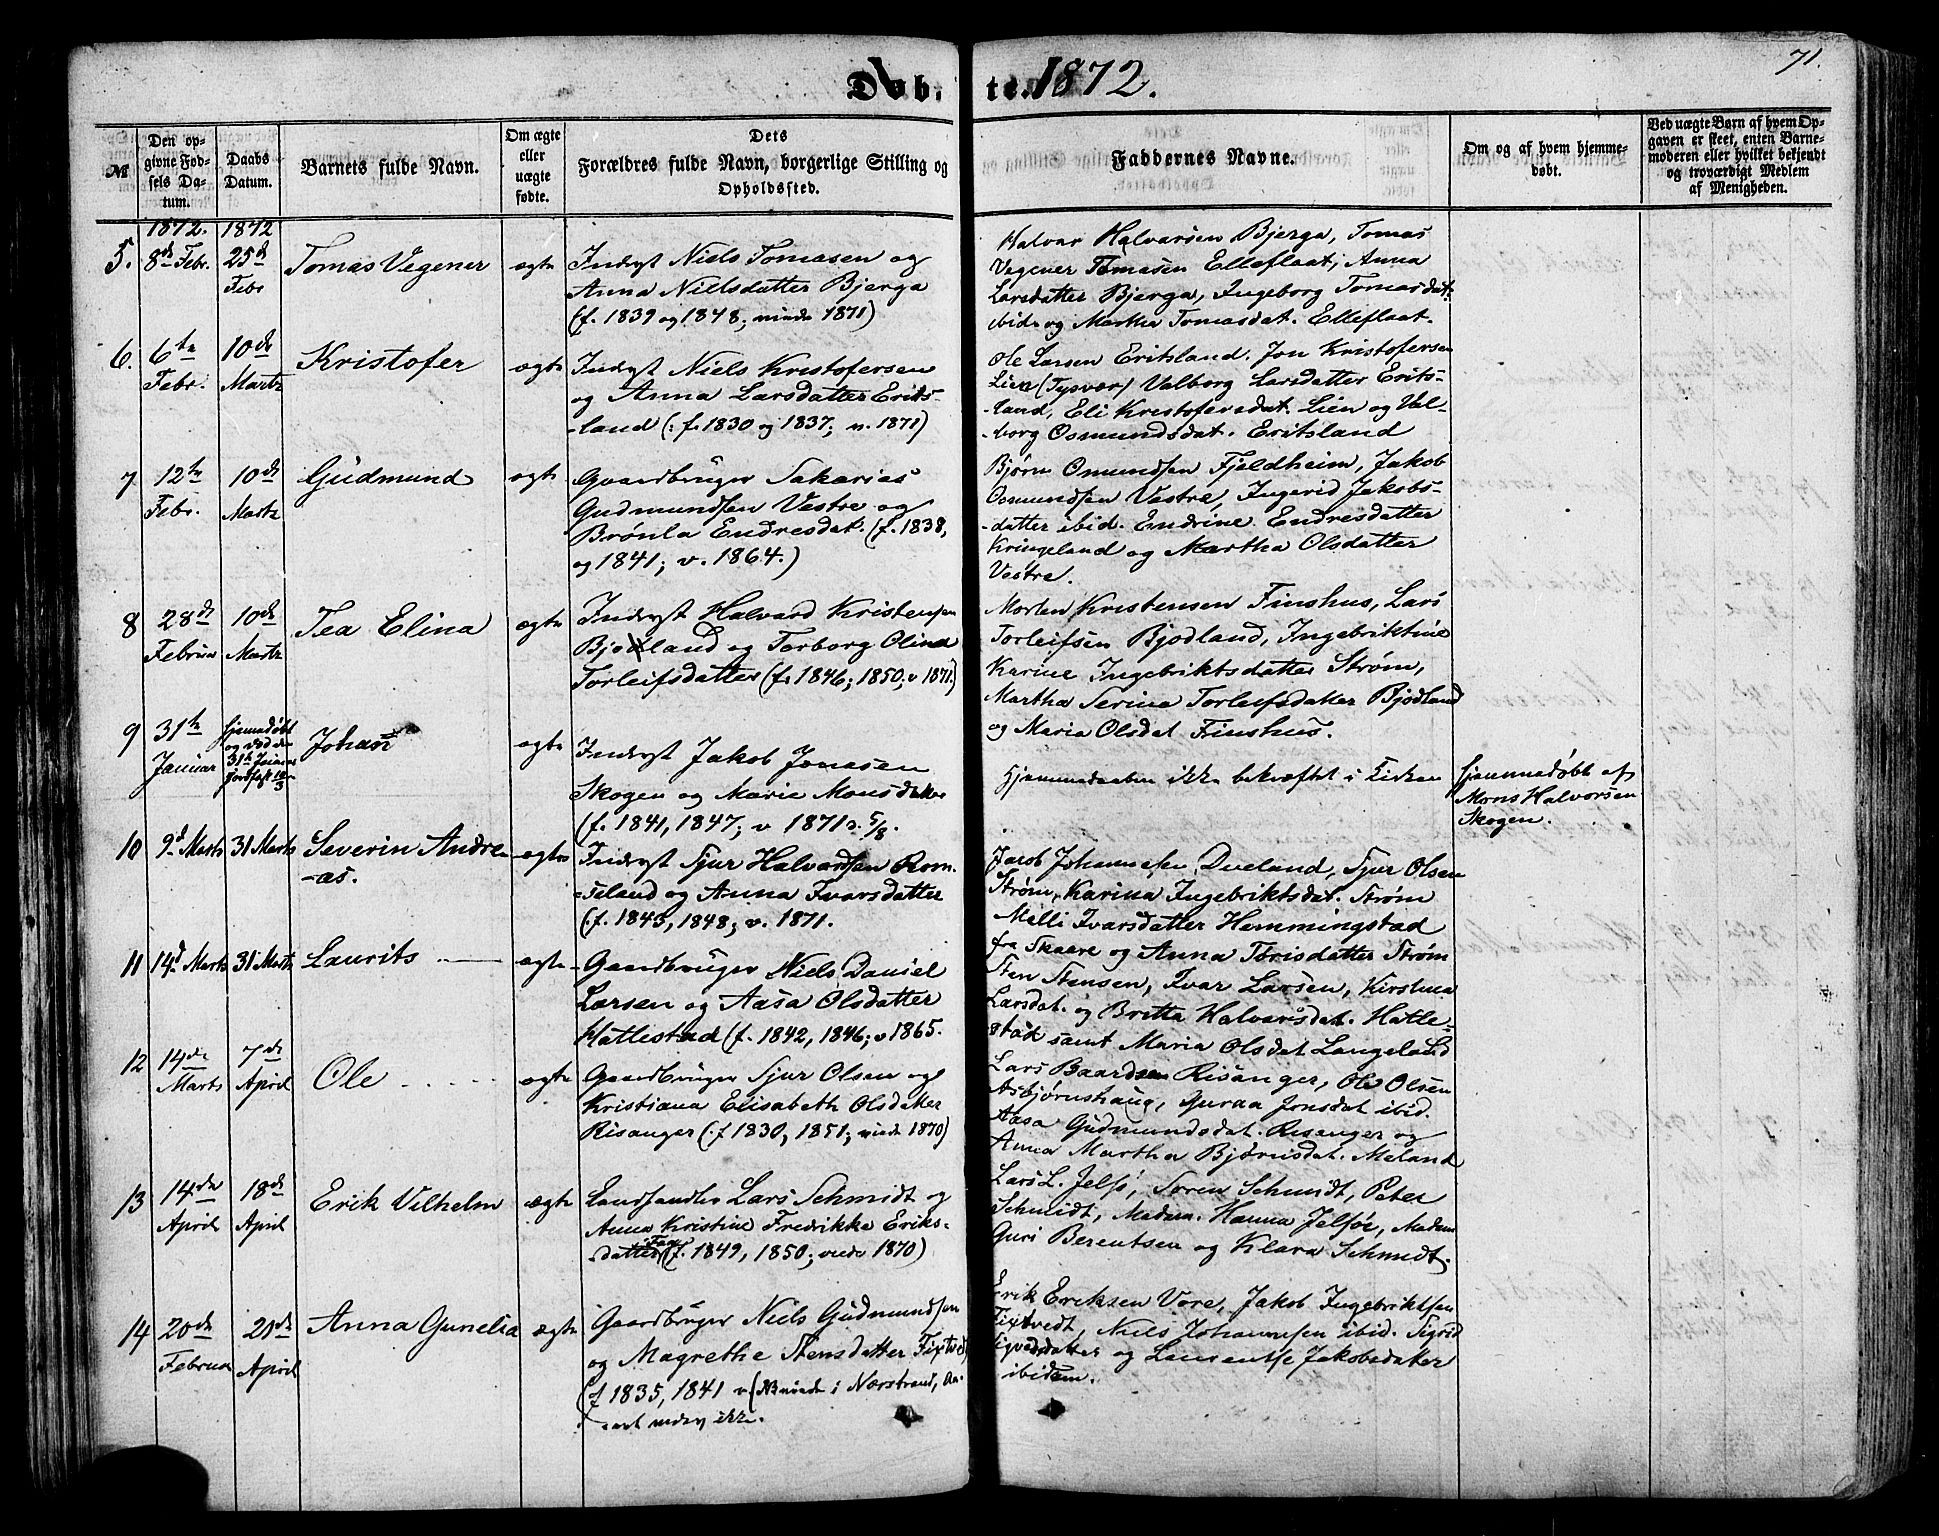 Døb. te. 1872.
71.
№
Den opgivne Fødsels Datum.
Daabs Datum.
Barnets fulde Navn.
Om ægte eller uægte fødte.
Dets Forældres fulde Navn, borgerlige Stilling og Opholdssted.
Faddernes Navne.
Om og af hvem hjemmedøbt.
Ved uægte Børn af hvem Opgaven er skeet, enten Barnemoderen eller hvilket bekjendt og troværdigt Medlem af Menigheden.
1872. 1872
5. 8de Febr. 25de Febr Tomas Vegener ægte
Inderst Niels Tomasen og
Anna Nielsdatter Bjerga
(f. 1839 og 1848; viede 1871)
Halvar Halvarsen Bjerga, Tomas
Vegener Tomasen Elleflaat, Anna
Larsdatter Bjerga, Ingeborg Tomasdat.
ibid. og Martha Tomasdat. Elleflaat.
6. 6te Febr. 10de Martz Kristofer ægte
Inderst Niels Kristofersen
og Anna Larsdatter Erits-
-land (: f. 1830 og 1837; v. 1871)
Ole Larsen Eritsland. Jon Kristofersen
Lien (Tysvær) Valborg Larsdatter Erits-
-land, Eli Kristofersdat. Lien og Val-
-borg Osmundsdat. Eritsland
7 12te Febr. 10de Martz Gudmund ægte
Gaardbruger Sakarias
Gudmundsen Vestre og
Brønla Endresdat. (f. 1838,
og 1841; v. 1864.)
Bjørn Omundsen Fjeldheim, Jakob
Osmundsen Vestre, Ingerid Jakobs-
-datter ibid. Endrine Endresdatter
Kringeland og Martha Olsdatter
Vestre.
8 28de Februar 10de Martz Tea Elina ægte
Inderst Halvard Kristensen
Bjodland og Torborg Olina
Torleifsdatter (f. 1846; 1850; v 1871.)
Morten Kristensen Finshus, Lars
Torleifsen Bjodland, Ingebriktine
Karine Ingebriktsdatter Strøm,
Martha Serine Torleifsdatter Bjodland
og Maria Olsdat Finshus.
9 31te Januar
hjemmedøbt
og død den
31te Januar
jordfæst 10/3
Johan ægte
Inderst Jakob Jonasen
Skogen og Marie Monsdatter
(f. 1841, 1847; v 1871 5/8.
Hjemmedaaben ikke bekræftet i Kirken
hjemmedøbt af
Mons Halvorsen
Skogen.
10 9de Marts 31 Marts Severin Andre-
-as. ægte
Inderst Sjur Halvardsen Rom-
-seland og Anna Ivarsdatter
(f. 1843, 1848; v. 1871.
Jacob Johannesen Dueland, Sjur Olsen
Strøm, Karina Ingebriktsdat. Strøm
Malli Ivarsdatter Hemmingstad
fra Skaare og Anna Torisdatter Strøm
11 14de Marts 31 Marts Laurits ægte
Gaardbruger Niels Daniel
Larsen og Aasa Olsdatter
Hatlestad (f. 1842, 1846; v 1865.
Sten Stensen, Ivar Larsen, Kirstina
Larsdat. og Britta Halvarsdat. Hatle-
stad samt Maria Olsdat Langeland
12 14de Marts 7de April Ole ægte
Gaardbruger Sjur Olsen og
Kristiana Elisabeth Olsdatter
Risanger (f. 1830, 1851; viede 1870)
Lars Baardsen Risanger, Ole Olsen
Asbjørnshaug, Guraa Jonsdat ibid.
Aasa Gudmundsdat. Risanger og
Anna Martha Bjørnsdat. Meland
13 14de April 18de April Erik Vilhelm ægte
Landhandler Lars Schmidt og
Anna Kristine Fredrikke Eriks-
-datter (f. 1849, 1850; viede 1870)
Lars L. Jelsø, Søren Schmidt, Peter
Schmidt, Madam Hanna Jelsøe, Madam
Guri Berentsen og Klara Schmidt.
14 20de Februar 21de April Anna Gunelia ægte
Gaardbruger Niels Gudmundsen
og Magrethe Stensdatter Fixtved
(f 1835, 1841 v (NB viede i Nærstrand,
ikke.
Erik Eriksen Vore, Jakob Ingebriktsen
Fixtvedt, Niels Johannesen ibid. Sigrid
Sigvedsdatter og Laurentse Jakobsdatter
ibidem.